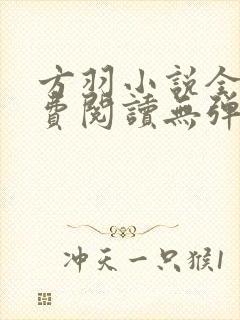 方羽小說全
費閱讀無彈
冲天一只猴1